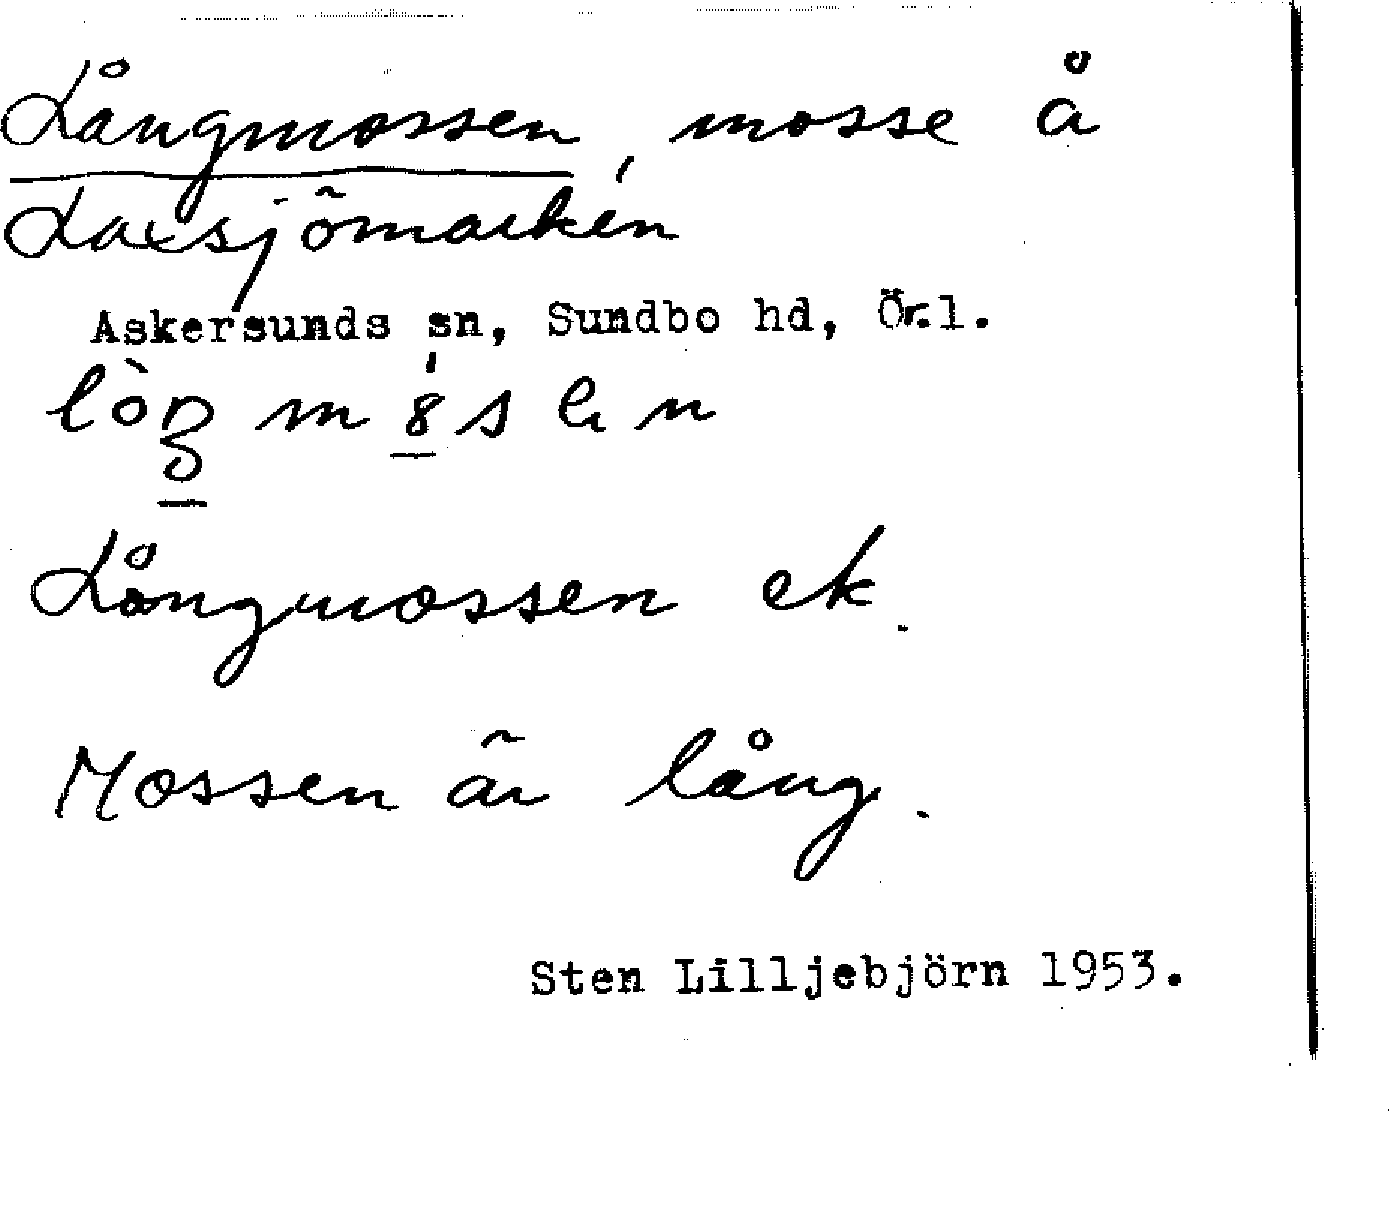 Långmossen, mosse å
Laxsjömarken
Askersunds sn, Sundbo hd, Ör.l.
Långmossen ek.
Mossen är lång.
Sten Lilljebjörn 1953.